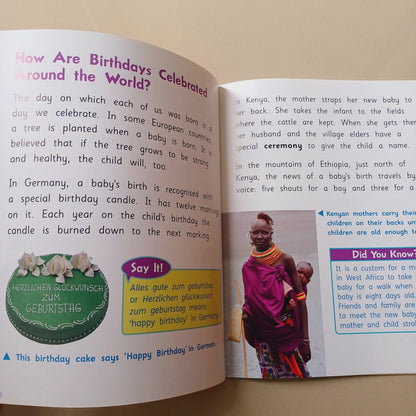 How Are Birthdays Celebrated
Around the World?
The day on which each of us was born is a
day we celebrate. In some European countries
a tree is planted when a baby is born. It is
believed that if the tree grows to be strong
and healthy, the child will, too.
In Germany, a baby's birth is recognised with
a special birthday candle. It has twelve markings
on it. Each year on the child's birthday the
candle is burned down to the next marking
HERZLICHEN GLÜCKWUNSCH
ZUM
GEBURTSTAG
Say It!
Alles gute zum geburtstag
or Herzlichen glückwunsch
zum geburtstag means
'happy birthday' in Germany.
▲ This birthday cake says 'Happy Birthday' in German.
In Kenya, the mother straps her new baby to
her back. She takes the infant to the fields
where the cattle are kept. When she gets ther
her husband and the village elders have a
special ceremony to give the child a name.
In the mountains of Ethiopia, just north of
Kenya, the news of a baby's birth travels by
voice: five shouts for a boy and three for a
◀ Kenyan mothers carry their
children on their backs until
children are old enough to
Did You Know?
It is a custom for a m
in West Africa to take
baby for a walk when
baby is eight days old.
Friends and family are
to meet the new baby
mother and child stro